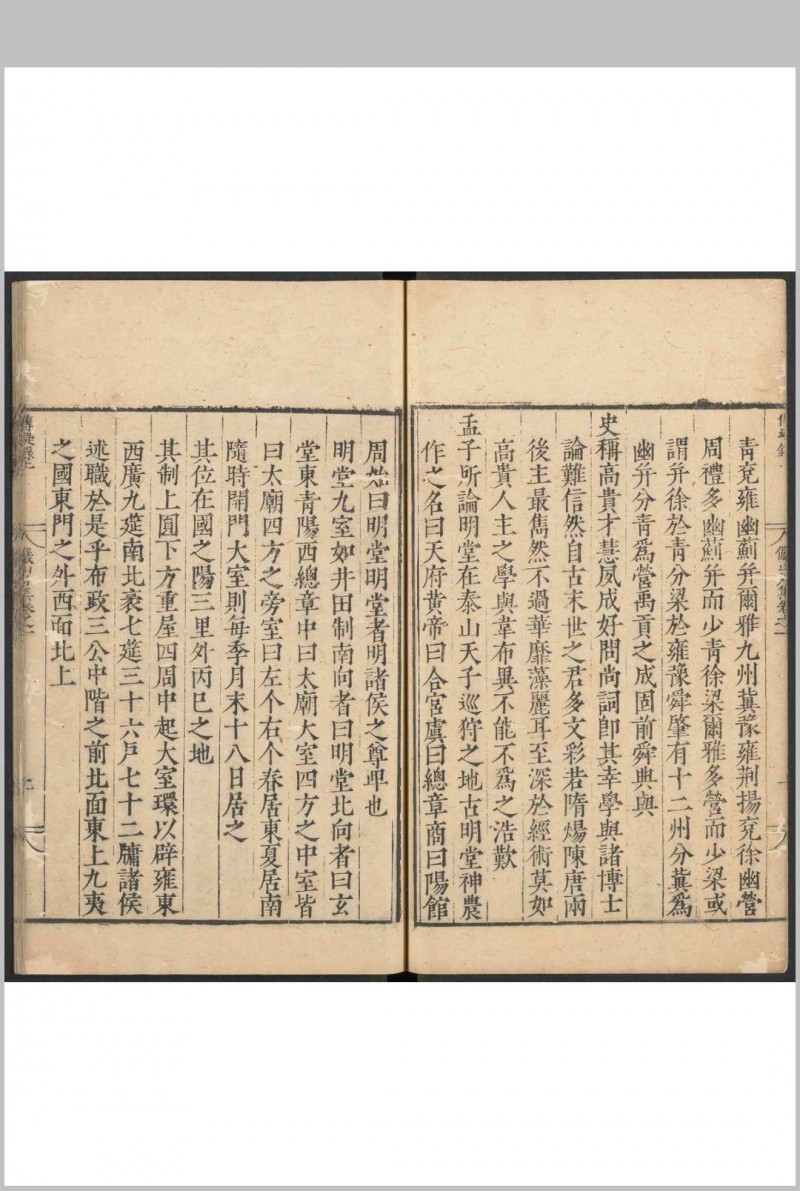 青兖雍幽薊并爾雅九州冀豫雍荆揚兖徐幽營
周禮多幽薊并而少青徐梁爾雅多營而少梁或
謂并徐於青分梁於雍豫舜肇有十二州分冀爲
幽并分青爲營禹貢之成固前舜典與
史稱高貴才慧夙成好問尚詞卽其幸學與諸博士
論難信然自古末世之君多文彩若隋煬陳唐兩
後主最雋然不過華靡藻麗耳至深於經術莫如
高貴人主之學與韋布異不能不爲之浩歎
孟子所論明堂在泰山天子巡狩之地古明堂神農
作之名曰天府黄帝曰合宫虞曰總章商曰陽館
周始曰明堂明堂者明諸侯之尊卑也
明堂九室如井田制南向者曰明堂北向者曰玄
堂東青陽西總章中曰太廟大室四方之中室皆
曰太廟四方之旁室曰左个右个春居東夏居南
隨時開門大室則每季月末十八日居之
其位在國之陽三里外丙巳之地
其制上圓下方重屋四周中起大室環以辟雍東
西廣九筵南北袤七筵三十六戸七十二牖諸侯
述職於是乎布政三公中階之前北面東上九夷
之國東門之外西面北上